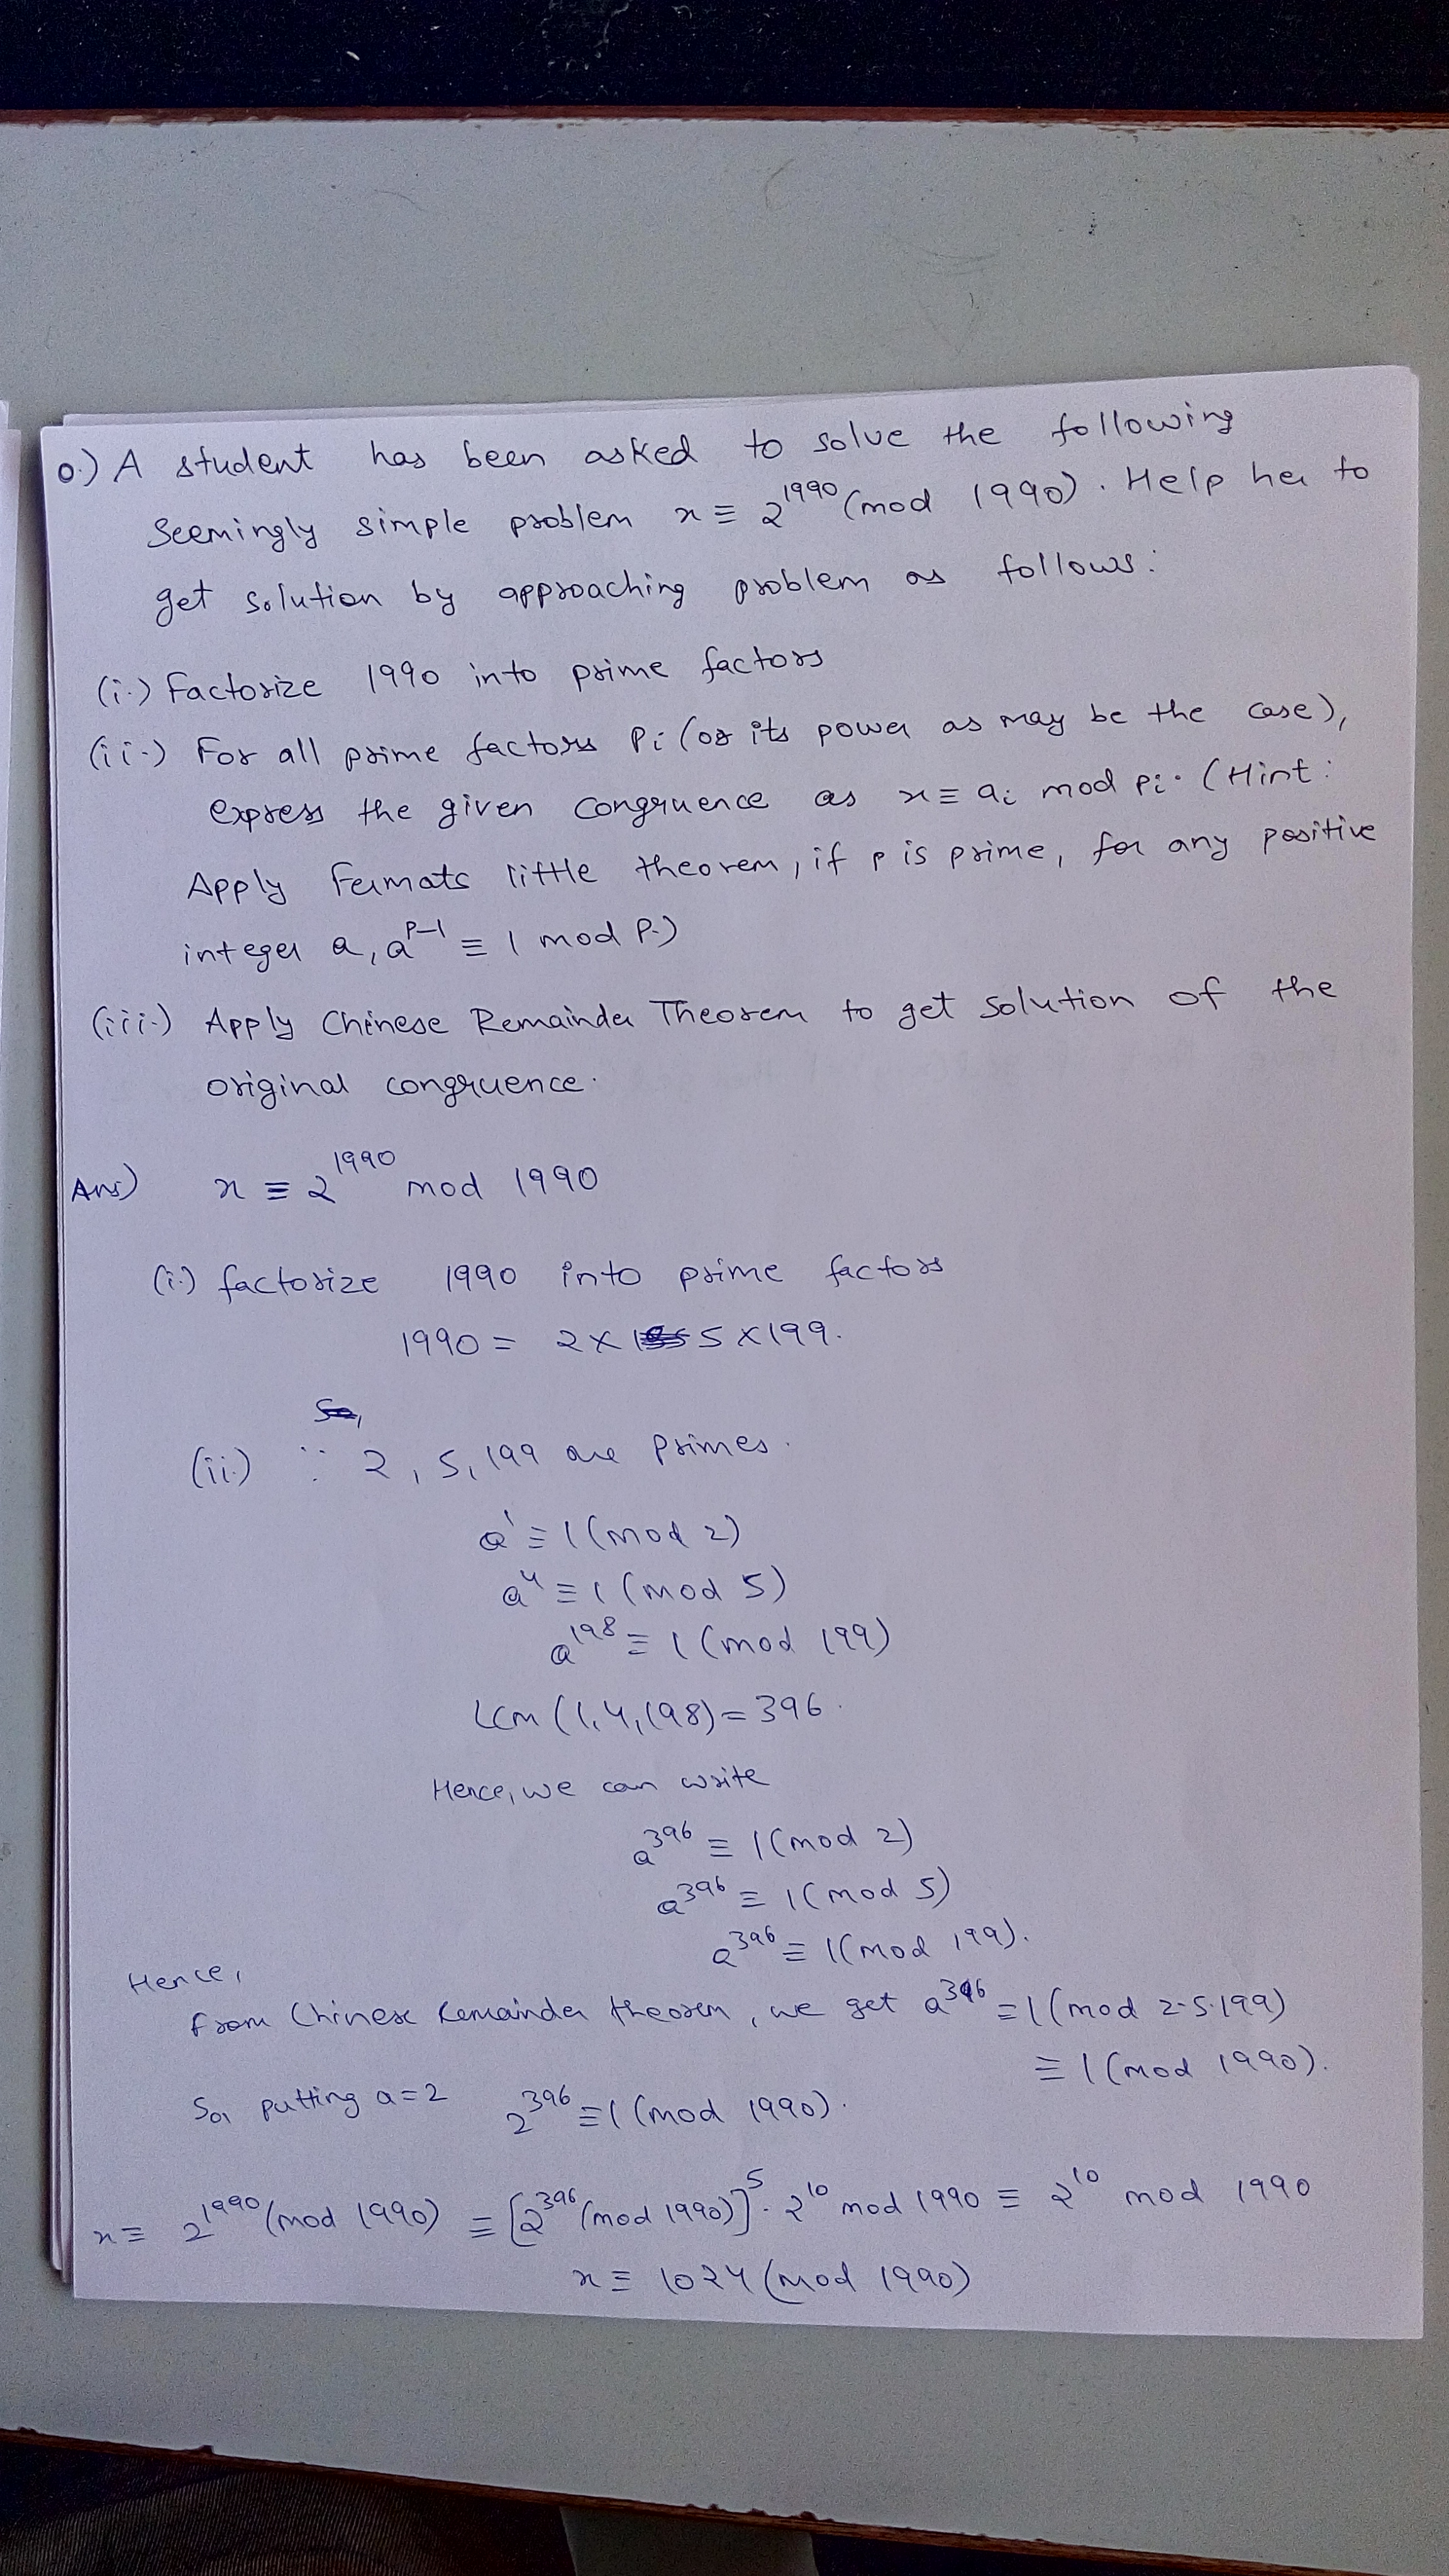 0.) A student has been asked to solve the following
Seemingly simple problem x ≡ 2^1990 (mod 1990). Help her to
get solution by approaching problem as follows:
(i.) Factorize 1990 into prime factors
(ii.) For all prime factors Pi (or its power as may be the case),
express the given congruence as x ≡ ai mod pi. (Hint:
Apply Fermats little theorem, if p is prime, for any positive
integer a, a^p-1 ≡ 1 mod P.)
(iii.) Apply Chinese Remainder Theorem to get solution of the
original congruence.
Ans) x ≡ 2^1990 mod 1990
(i.) factorize 1990 into prime factors
1990 = 2 × 5 × 199.
(ii.) ∵ 2, 5, 199 are primes.
a^1 ≡ 1 (mod 2)
a^4 ≡ 1 (mod 5)
a^198 ≡ 1 (mod 199)
LCM (1, 4, 198) = 396.
Hence, we can write
a^396 ≡ 1 (mod 2)
a^396 ≡ 1 (mod 5)
a^396 ≡ 1 (mod 199).
Hence,
from Chinese Remainder theorem, we get a^396 ≡ 1 (mod 2.5.199)
≡ 1 (mod 1990).
So, putting a = 2 2^396 ≡ 1 (mod 1990).
x ≡ 2^1990 (mod 1990) ≡ [2^396 (mod 1990)]^5 . 2^10 mod 1990 ≡ 2^10 mod 1990
x ≡ 1024 (mod 1990)